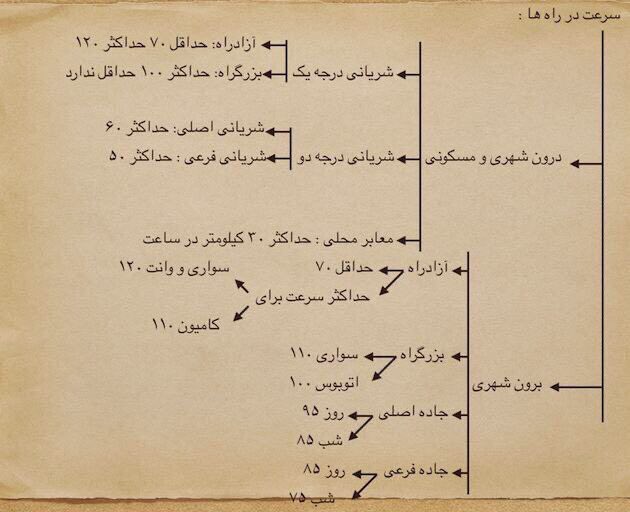 سرعت در راه ها :
درون شهری و مسکونی
شریانی درجه یک
آزادراه: حداقل ۷۰ حداکثر ۱۲۰
بزرگراه: حداکثر ۱۰۰ حداقل ندارد
شریانی درجه دو
شریانی اصلی: حداکثر ۶۰
شریانی فرعی : حداکثر ۵۰
معابر محلی : حداکثر ۳۰ کیلومتر در ساعت
برون شهری
آزادراه
حداقل ۷۰
حداکثر سرعت برای
سواری و وانت ۱۲۰
کامیون ۱۱۰
بزرگراه
سواری ۱۱۰
اتوبوس ۱۰۰
جاده اصلی
روز ۹۵
شب ۸۵
جاده فرعی
روز ۸۵
شب ۷۵